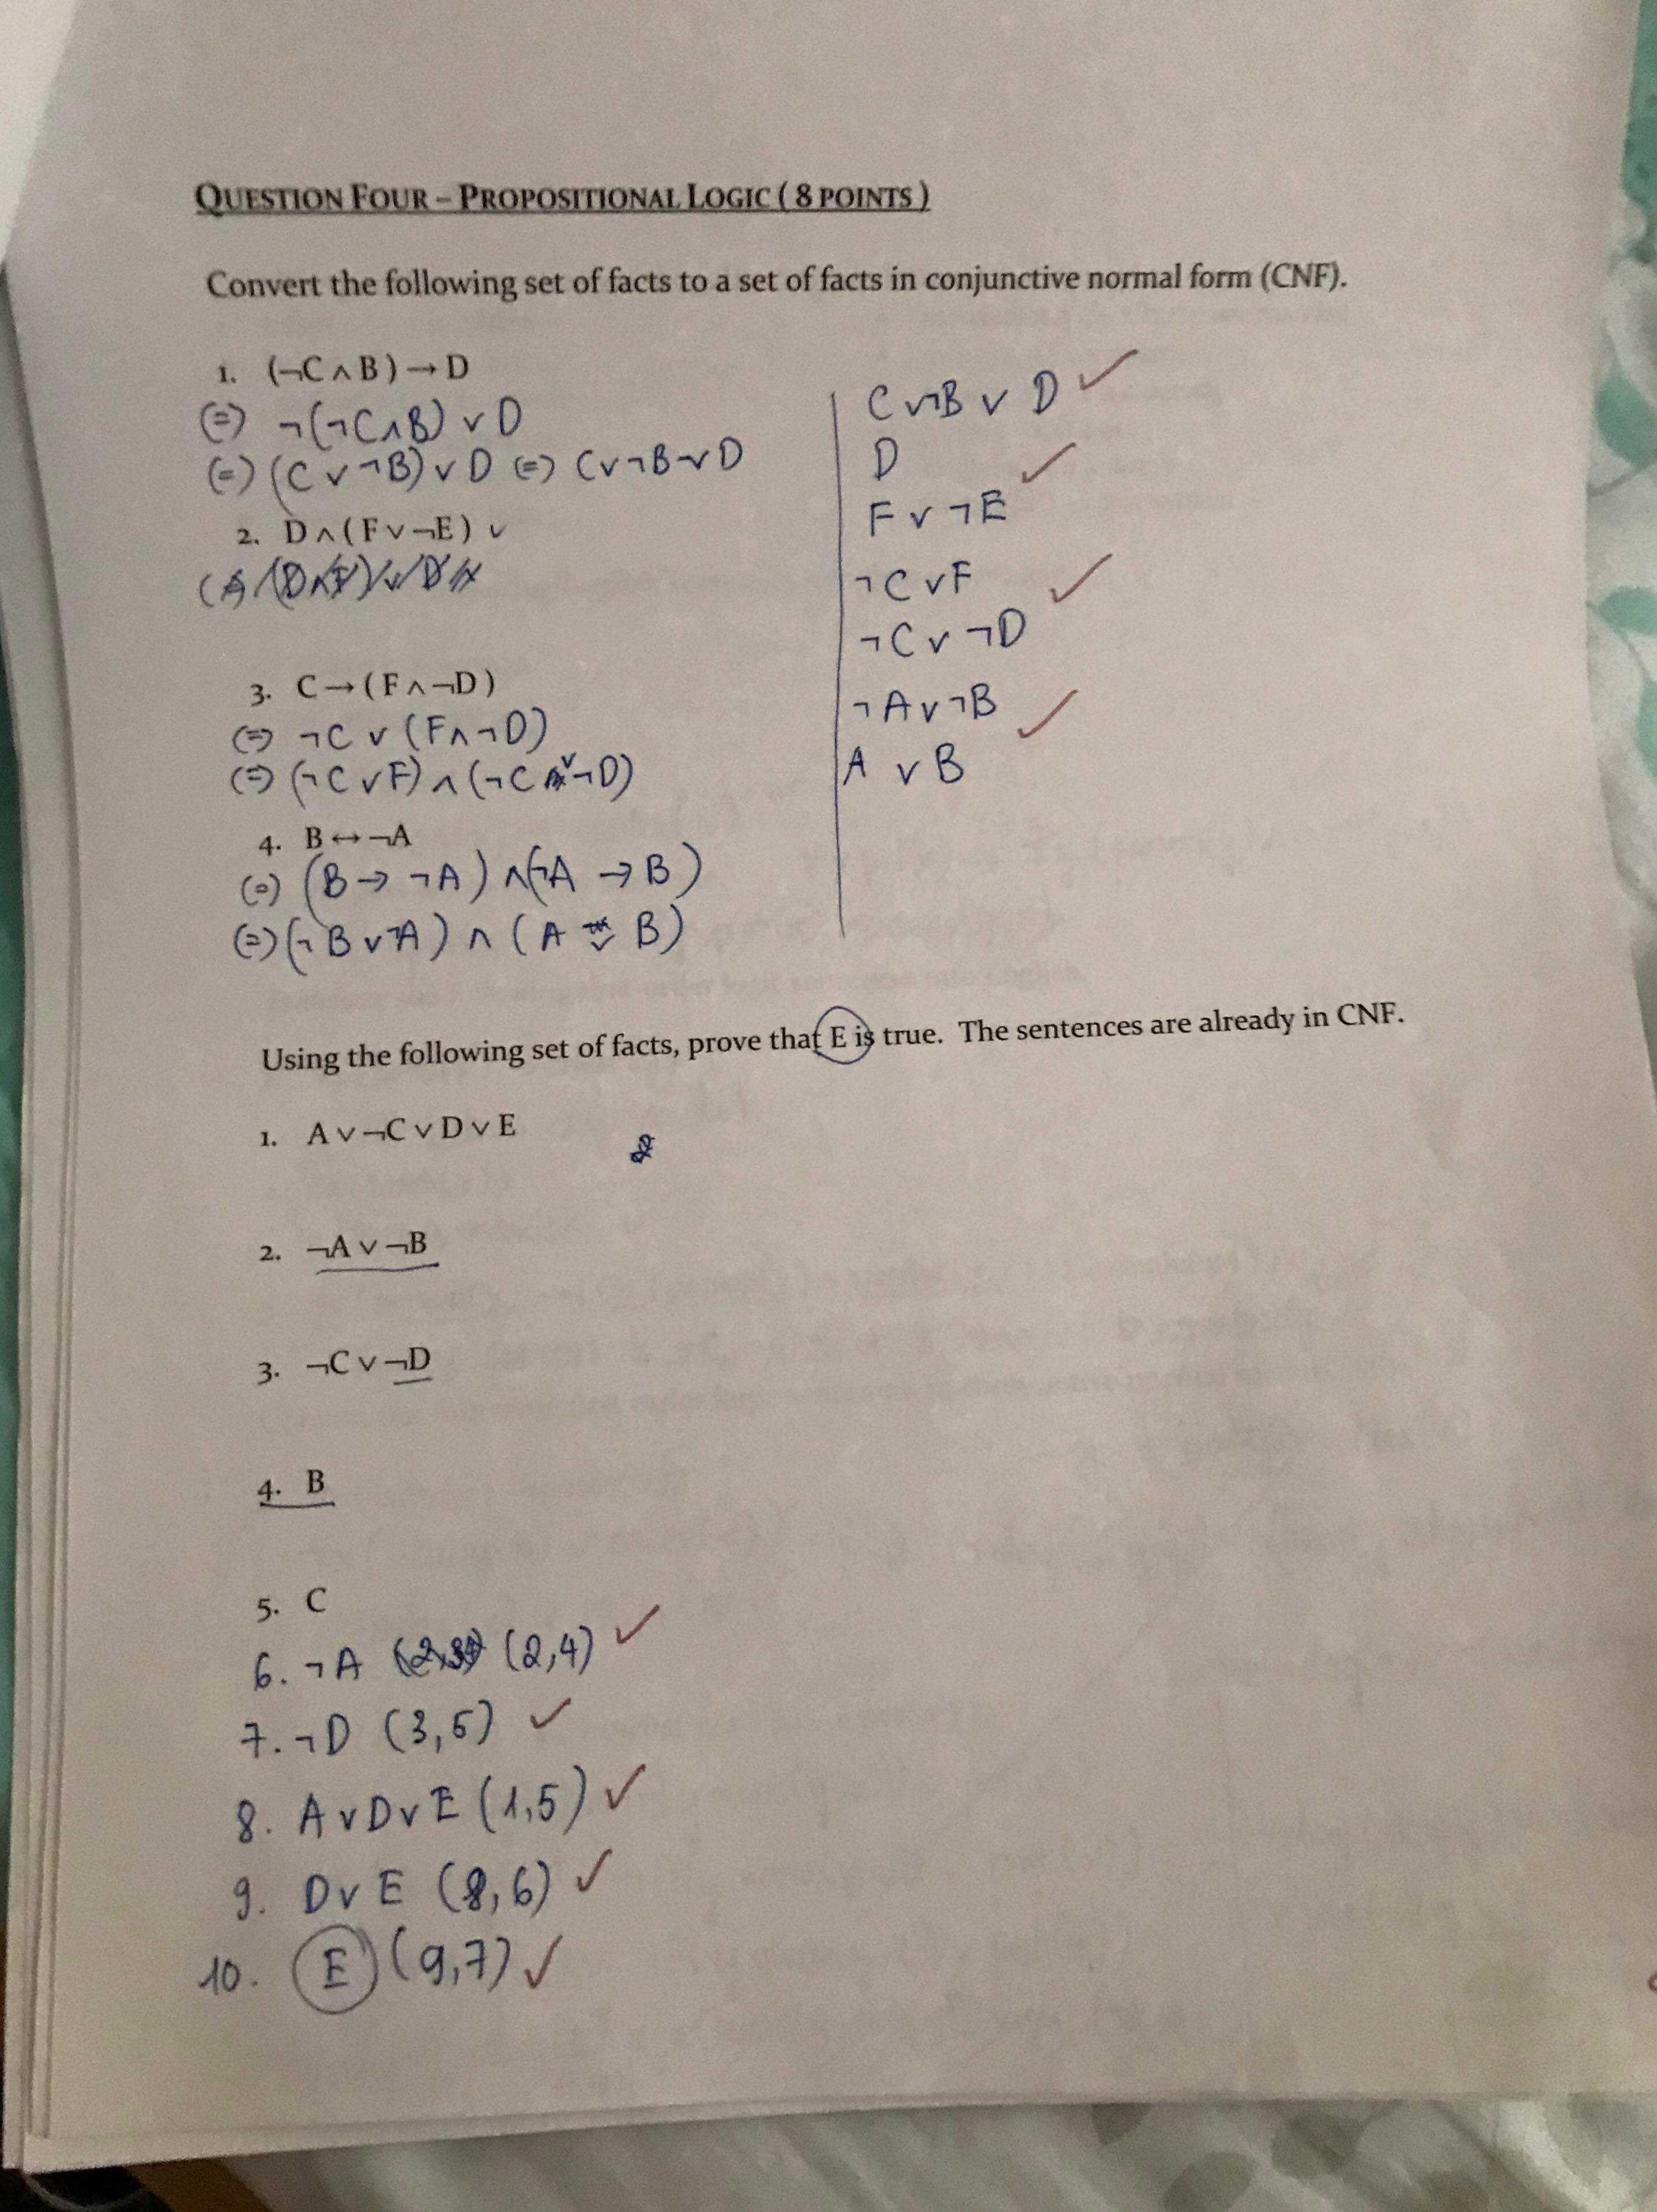 QUESTION FOUR – PROPOSITIONAL LOGIC ( 8 POINTS )
Convert the following set of facts to a set of facts in conjunctive normal form (CNF).
1. (¬C ∧ B) → D
(=) ¬(¬C∧B) ∨ D
(=) (C ∨ ¬B) ∨ D (=) C∨¬B∨D
2. D ∧ ( F ∨ ¬E ) ✓
3. C → ( F ∧ ¬D )
(=) ¬C ∨ (F∧¬D)
(=) (¬C ∨F) ∧ (¬C ∨¬D)
4. B ↔ ¬A
(=) (B → ¬A) ∧(¬A → B)
(=) (¬B ∨¬A) ∧ (A ∨ B)
C ∨¬B ∨ D ✓
D
F ∨ ¬E ✓
¬C ∨F ✓
¬C ∨ ¬D
¬A ∨ ¬B ✓
A ∨ B
Using the following set of facts, prove that E is true. The sentences are already in CNF.
1. A ∨ ¬C ∨ D ∨ E
2. ¬A ∨ ¬B
3. ¬C ∨ ¬D
4. B
5. C
6. ¬A (2,4) ✓
7. ¬D (3,5) ✓
8. A ∨ D ∨ E (1,5) ✓
9. D ∨ E (8,6) ✓
10. E (9,7) ✓